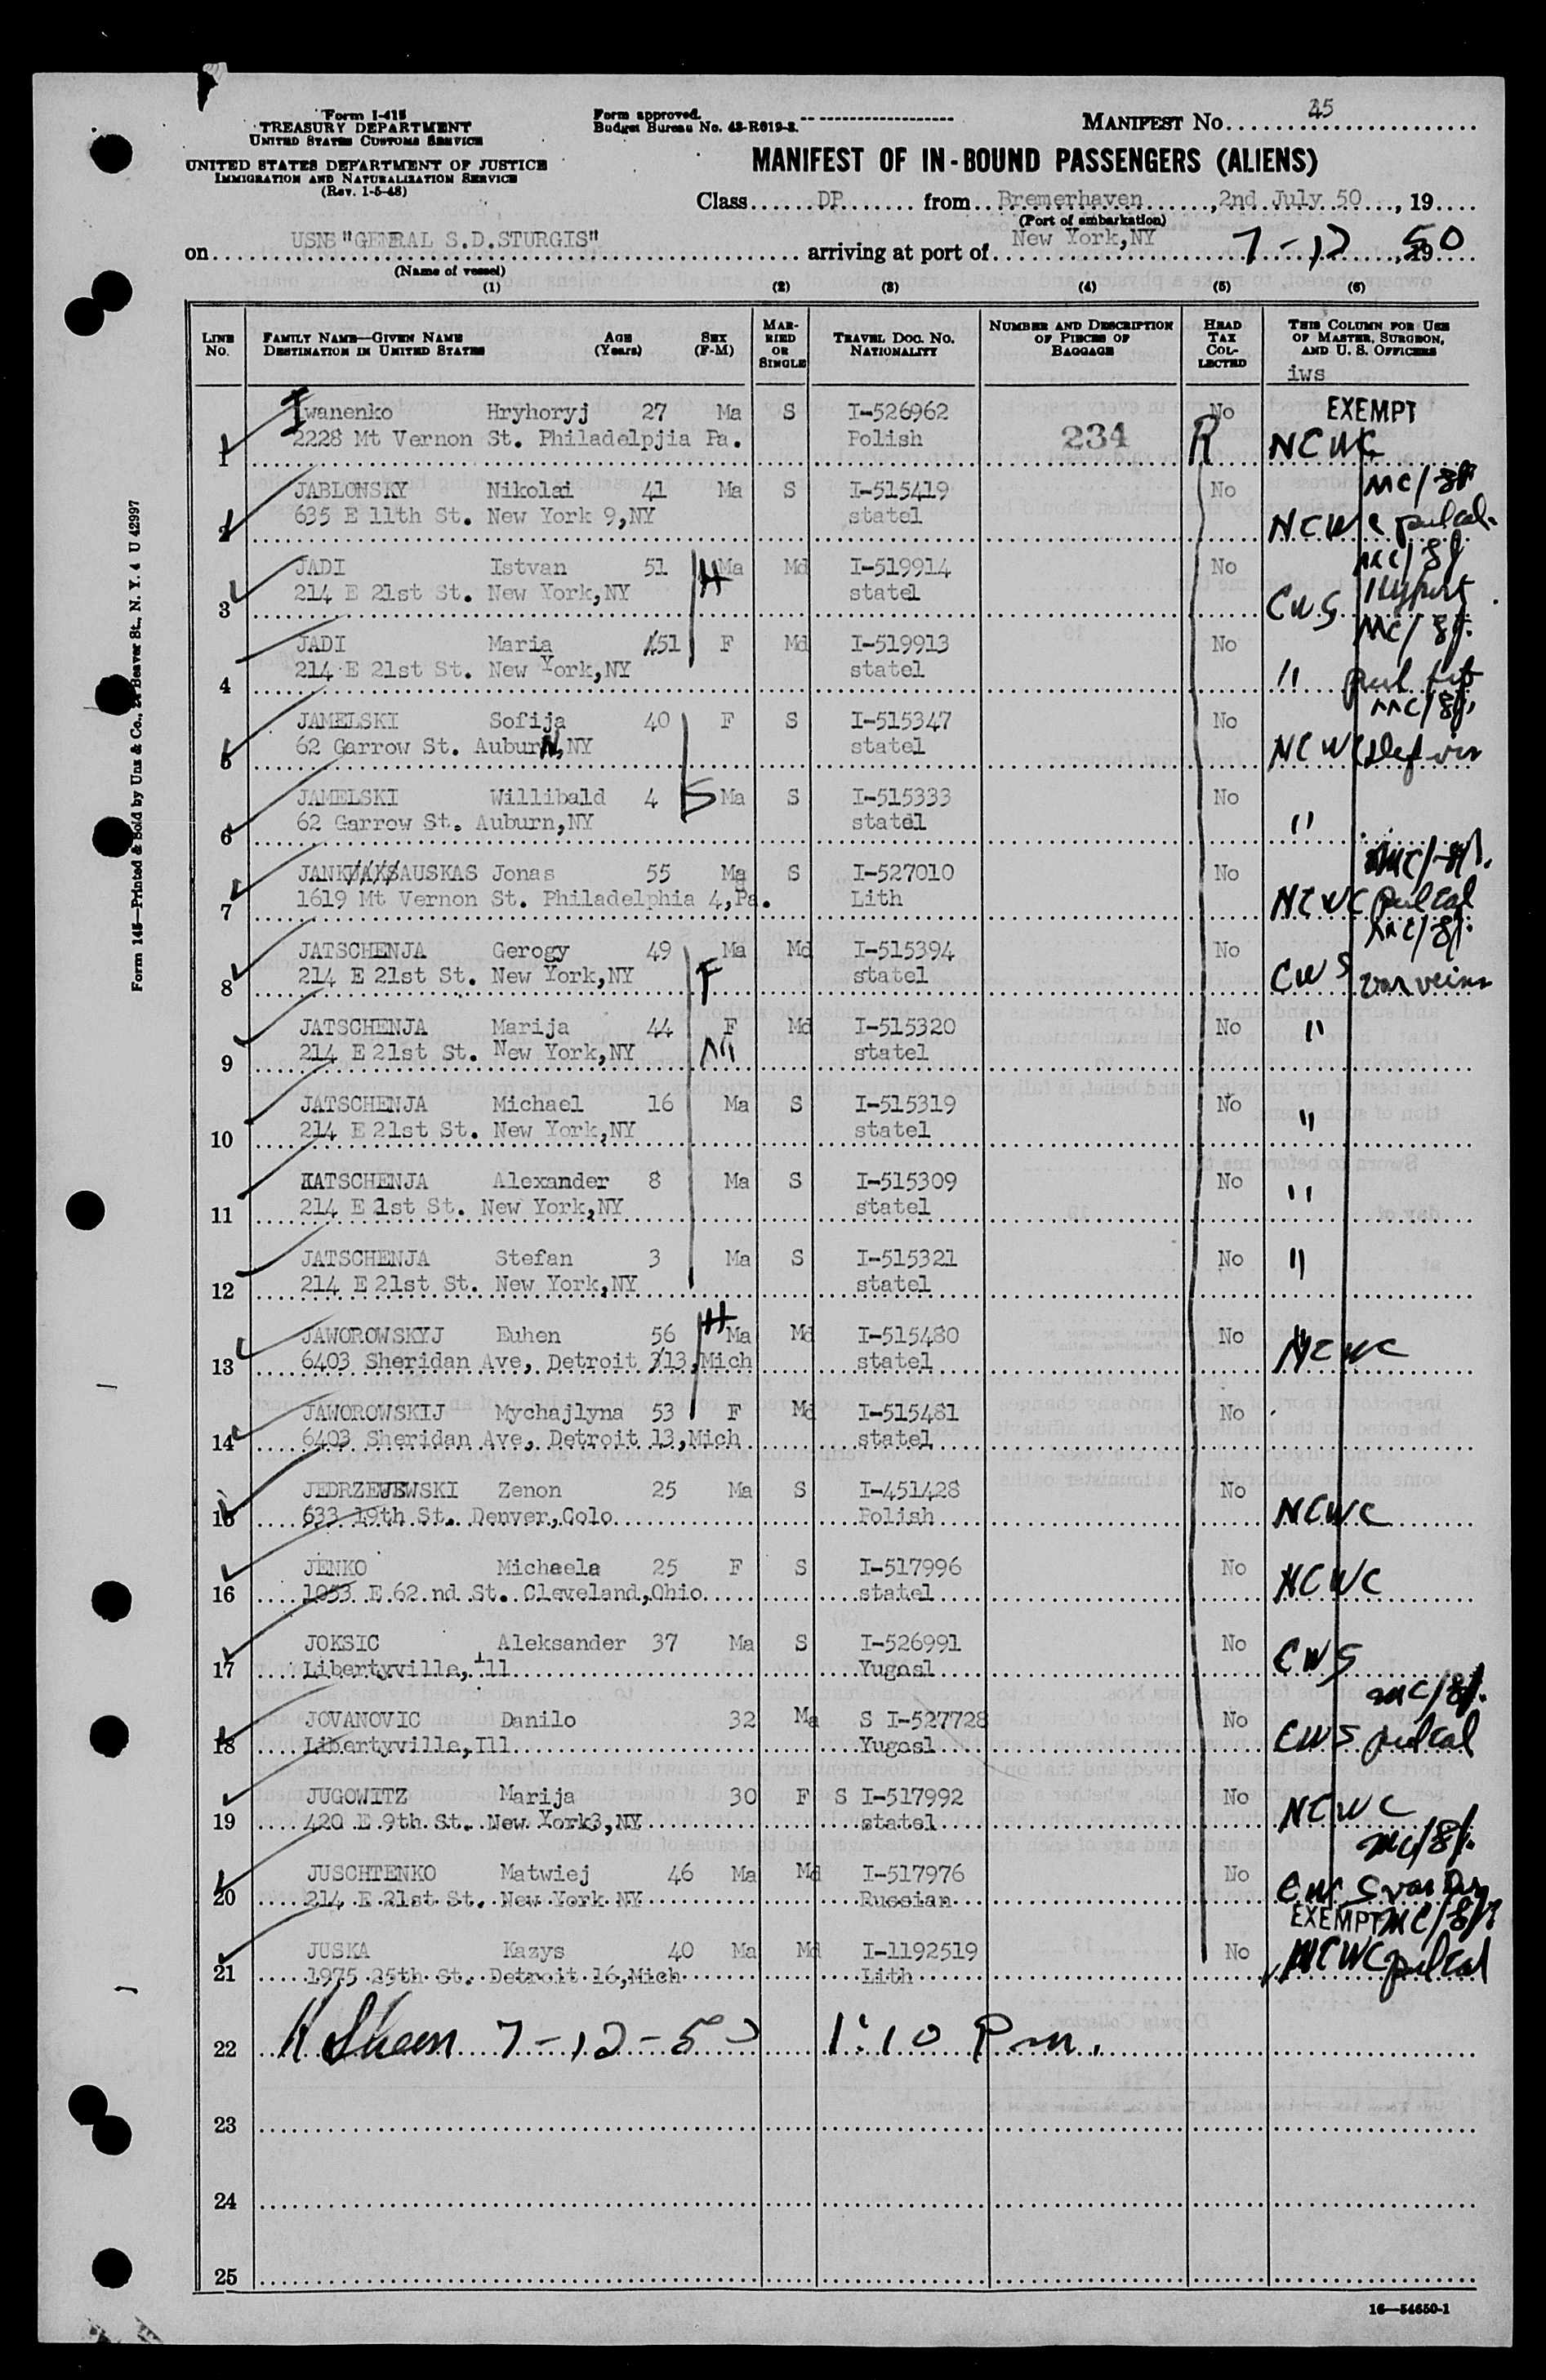 Form I-415
TREASURY DEPARTMENT
UNITED STATES CUSTOMS SERVICE
UNITED STATES DEPARTMENT OF JUSTICE
IMMIGRATION AND NATURALIZATION SERVICE
(Rev. 1-5-48)
Form approved.
Budget Bureau No. 43-R019-2.
MANIFEST No. 45
MANIFEST OF IN-BOUND PASSENGERS (ALIENS)
Class DP from Bremerhaven, 2nd July 50, 19
(Port of embarkation)
on USNS "GENERAL S.D.STURGIS" arriving at port of New York,NY 7-12, 1950
(Name of vessel)
(1) (2) (3) (4) (5) (6)
LINE No. FAMILY NAME—GIVEN NAME DESTINATION IN UNITED STATES AGE (Years) SEX (F-M) MARRIED OR SINGLE TRAVEL DOC. NO. NATIONALITY NUMBER AND DESCRIPTION OF PIECES OF BAGGAGE HEAD TAX COLLECTED THIS COLUMN FOR USE OF MASTER, SURGEON, AND U. S. OFFICERS
iws
Iwanenko Hryhoryj 27 Ma S I-526962 No EXEMPT
1 2228 Mt Vernon St. Philadelpjia Pa. Polish 234 R NCWC
JABLONSKY Nikolai 41 Ma S I-515419 No
2 635 E 11th St. New York 9,NY statel NCWC pulcal.
JADI Istvan 51 Ma Md I-519914 No
3 214 E 21st St. New York,NY statel CWS Hypert
JADI Maria 51 F Md I-519913 No
4 214 E 21st St. New York,NY statel "
JAMELSKI Sofija 40 F S I-515347 No
5 62 Garrow St. Auburn,NY statel NCWC def vis
JAMELSKI Willibald 4 Ma S I-515333 No
6 62 Garrow St. Auburn,NY statel "
JANKUAKSAUSKAS Jonas 55 Ma S I-527010 No
7 1619 Mt Vernon St. Philadelphia 4,Pa. Lith NCWC pulcal
JATSCHENJA Gerogy 49 Ma Md I-515394 No
8 214 E 21st St. New York,NY statel CWS var veins
JATSCHENJA Marija 44 F Md I-515320 No
9 214 E 21st St. New York,NY statel "
JATSCHENJA Michael 16 Ma S I-515319 No
10 214 E 21st St. New York,NY statel "
JATSCHENJA Alexander 8 Ma S I-515309 No
11 214 E 1st St. New York,NY statel "
JATSCHENJA Stefan 3 Ma S I-515321 No
12 214 E 21st St. New York,NY statel "
JAWOROWSKYJ Euhen 56 Ma Md I-515480 No
13 6403 Sheridan Ave, Detroit 13,Mich statel NCWC
JAWOROWSKIJ Mychajlyna 53 F Md I-515481 No
14 6403 Sheridan Ave, Detroit 13,Mich statel
JEDRZEJEWSKI Zenon 25 Ma S I-451428 No
15 633 19th St. Denver,Colo Polish NCWC
JENKO Michaela 25 F S I-517996 No
16 1053 E 62 nd St. Cleveland,Ohio statel NCWC
JOKSIC Aleksander 37 Ma S I-526991 No
17 Libertyville,Ill Yugosl CWS
JOVANOVIC Danilo 32 Ma S I-527728 No
18 Libertyville,Ill Yugosl CWS pulcal
JUGOWITZ Marija 30 F S I-517992 No
19 420 E 9th St. New York3,NY statel NCWC
JUSCHTENKO Matwiej 46 Ma Md I-517976 No
20 214 E 21st St. New York NY Russian CWS
EXEMPT
JUSKA Kazys 40 Ma Md I-1192519 No
21 1975 25th St. Detroit 16,Mich Lith NCWC pulcal
22 H Sheen 7-12-50 1:10 Pm.
23
24
25
16—54650-1
Form 145—Printed & Sold by Unz & Co., 24 Beaver St., N. Y. 4 U 42997